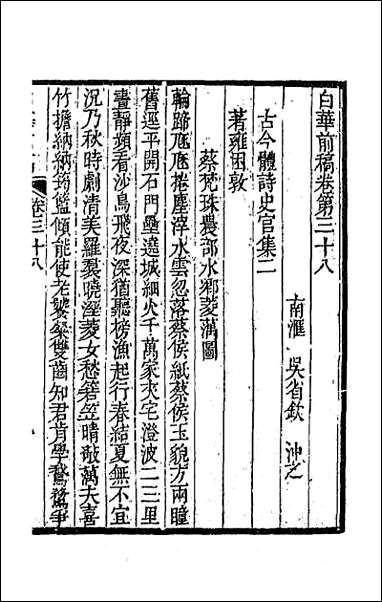 白華前稿卷第三十八
南滙　吳省欽　沖之
古今體詩史官集二
著雍困敦
蔡梵珠農部水鄉菱藕圖
輪蹄尫尫捲塵滓水雲忽落蔡侯紙蔡侯玉貌方兩瞳
舊逕平開石門壘遶城細火千萬家夾宅澄波二三里
晝靜頻看沙鳥飛夜深猶聽榜漁起行春結夏無不宜
況乃秋時劇清美羅裠曉溼菱女愁箬笠晴敧藕夫喜
竹擔納納筠籃傾能使老饕粲雙齒知君肯學鶩爭
卷三十八